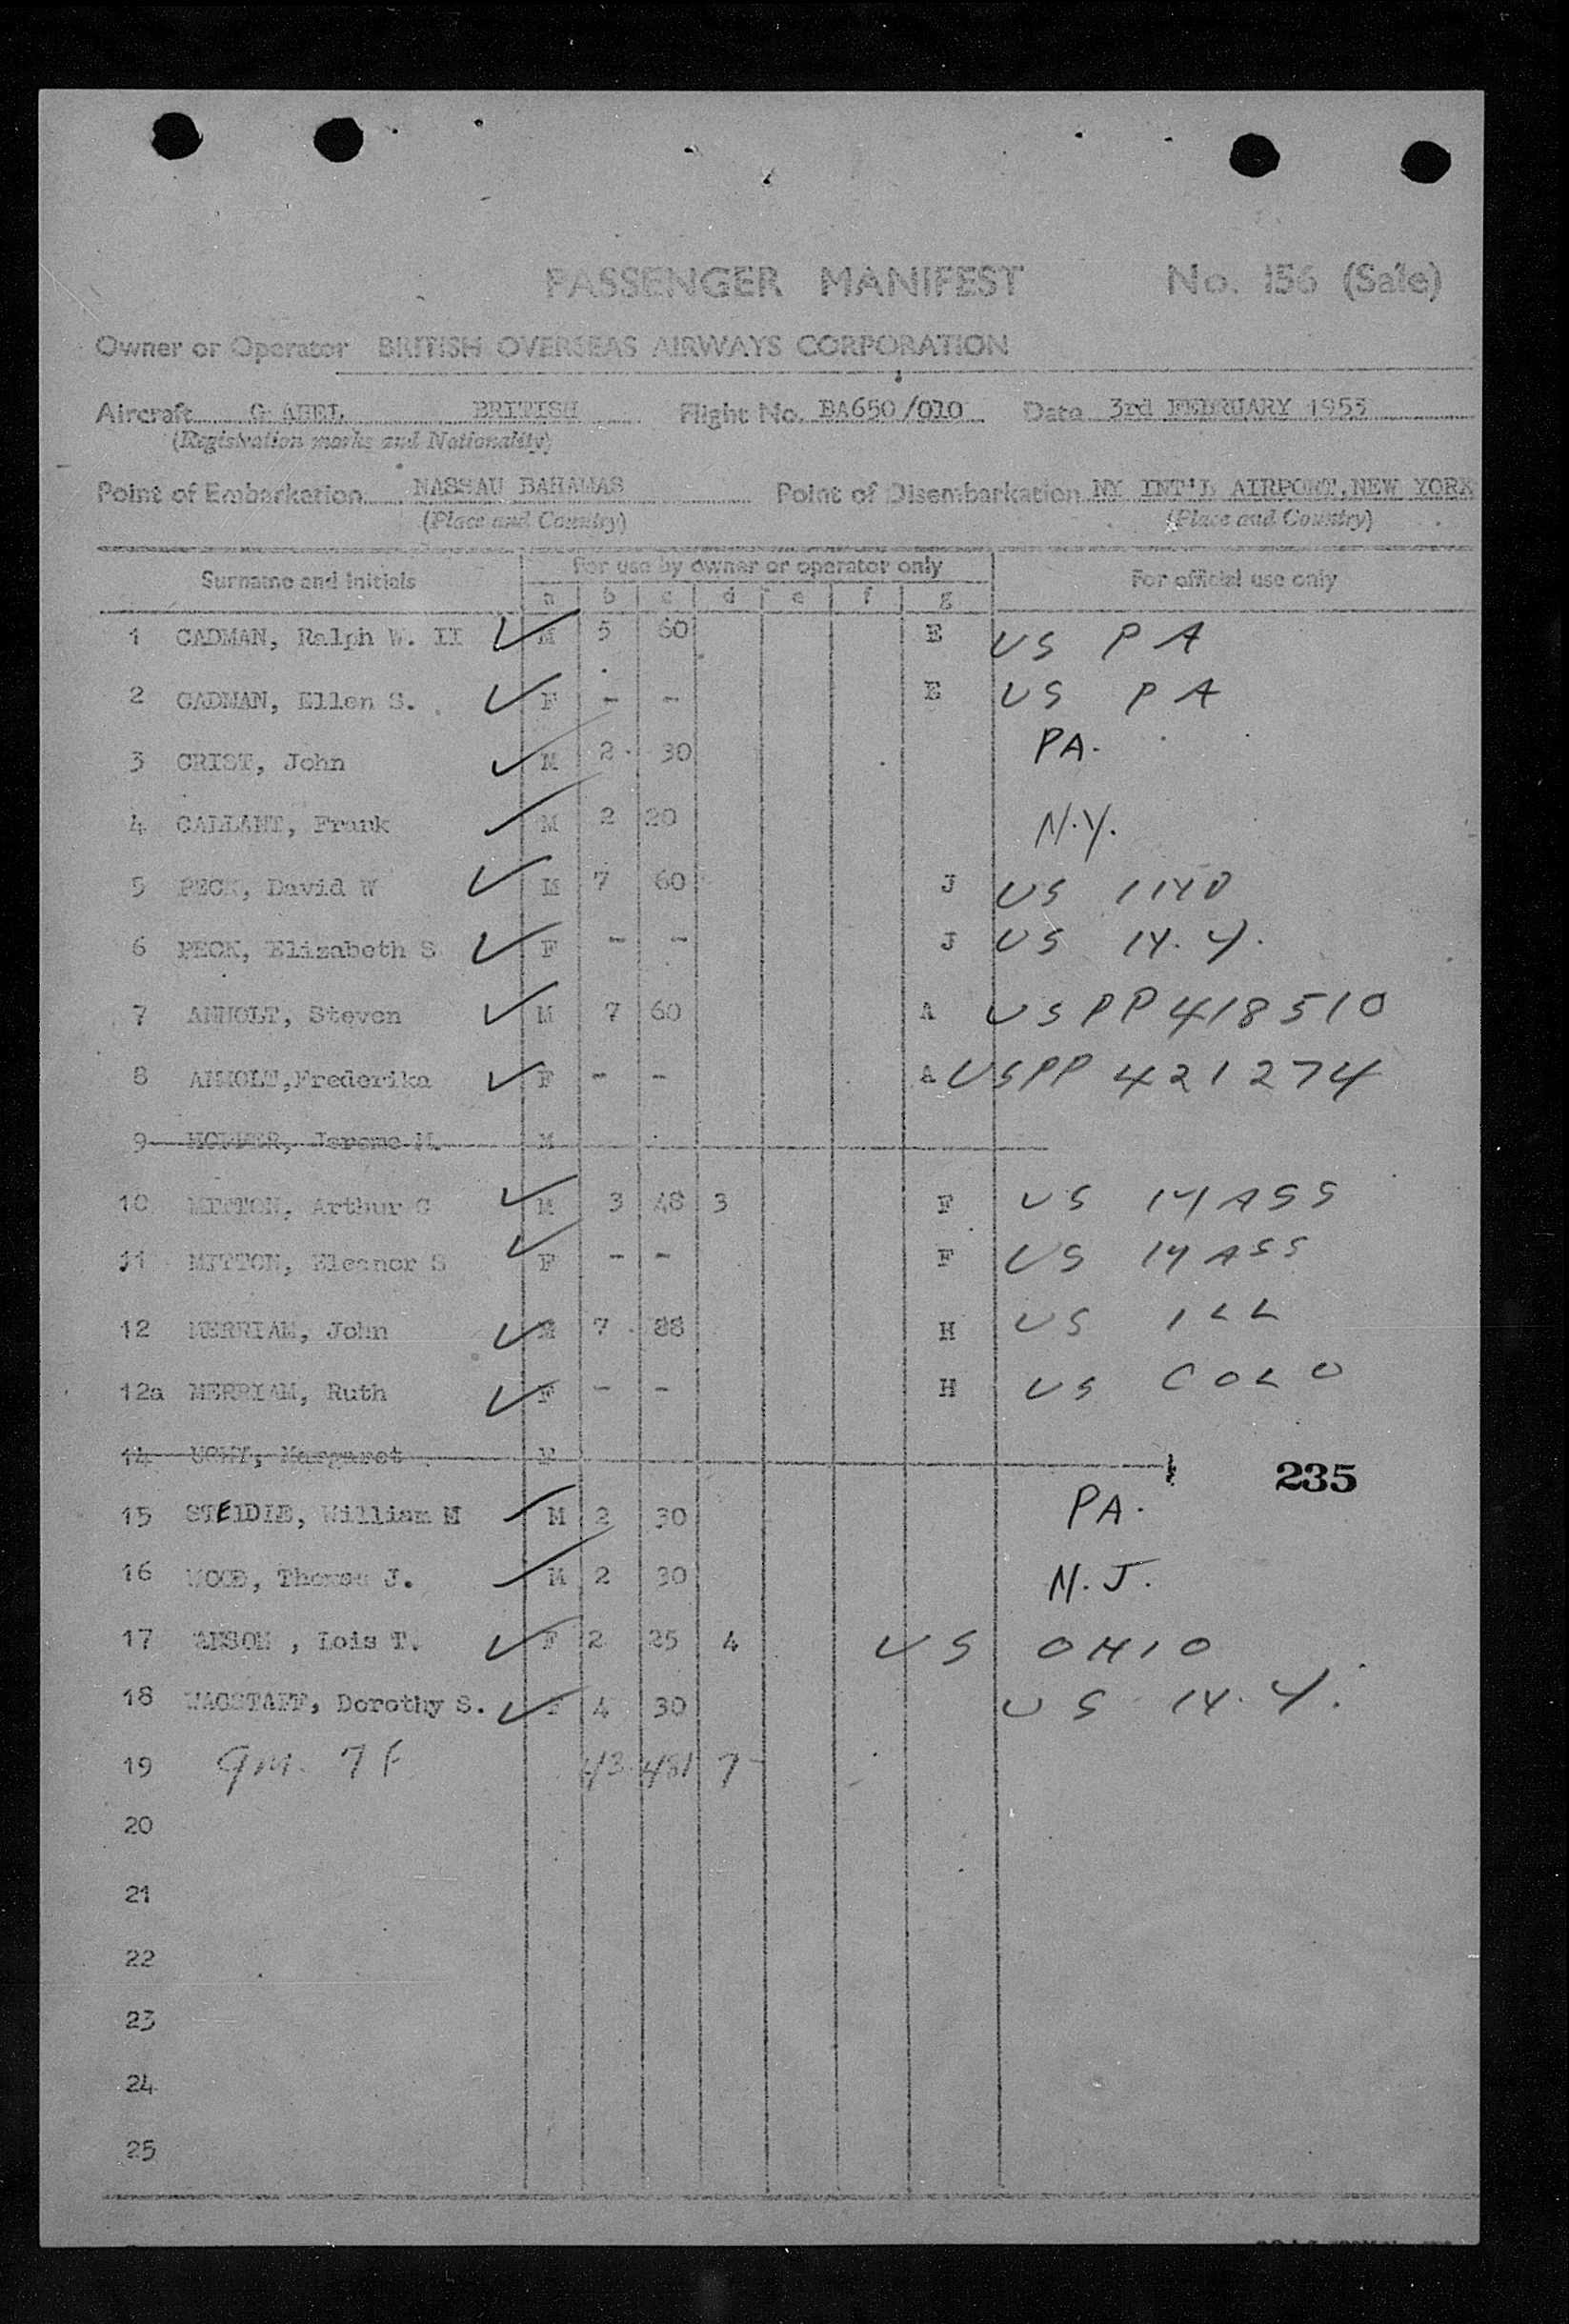 PASSENGER MANIFEST No. 156 (Sale)
Owner or Operator BRITISH OVERSEAS AIRWAYS CORPORATION
Aircraft BRITISH Flight No. BA650/010 Date 3rd FEBRUARY 1953
(Registration marks and Nationality)
Point of Embarkation NASSAU BAHAMAS Point of Disembarkation NY INT'L AIRPORT, NEW YORK
(Place and Country) (Place and Country)
Surname and Initials For use by owner or operator only For official use only
a b c d e f g
1 CADMAN, Ralph W. II ✓ M 5 60 E US PA
2 CADMAN, Ellen S. ✓ F - - E US PA
3 CRIST, John ✓ M 2 30 PA.
4 CALLANT, Frank ✓ M 2 20 N.Y.
5 PECK, David W ✓ M 7 60 J US IND
6 PECK, Elizabeth S ✓ F - - J US N.Y.
7 ANHOLT, Steven ✓ M 7 60 A US PP 418510
8 ANHOLT, Frederika ✓ F - - A US PP 421274
9 Jerome M
10 MITTON, Arthur C ✓ M 3 48 3 F US MASS
11 MITTON, Eleanor S ✓ F - - F US MASS
12 MERRIAM, John ✓ M 7 88 H US ILL
12a MERRIAM, Ruth ✓ F - - H US COLO
14 Margaret F
235
15 STEIDLE, William M ✓ M 2 30 PA.
16 WOOD, Thomas J. ✓ M 2 30 N.J.
17 Lois T. ✓ F 2 25 4 US OHIO
18 WAGSTAFF, Dorothy S. ✓ F 4 30 US N.Y.
19 9M 7F 43 481 7
20
21
22
23
24
25